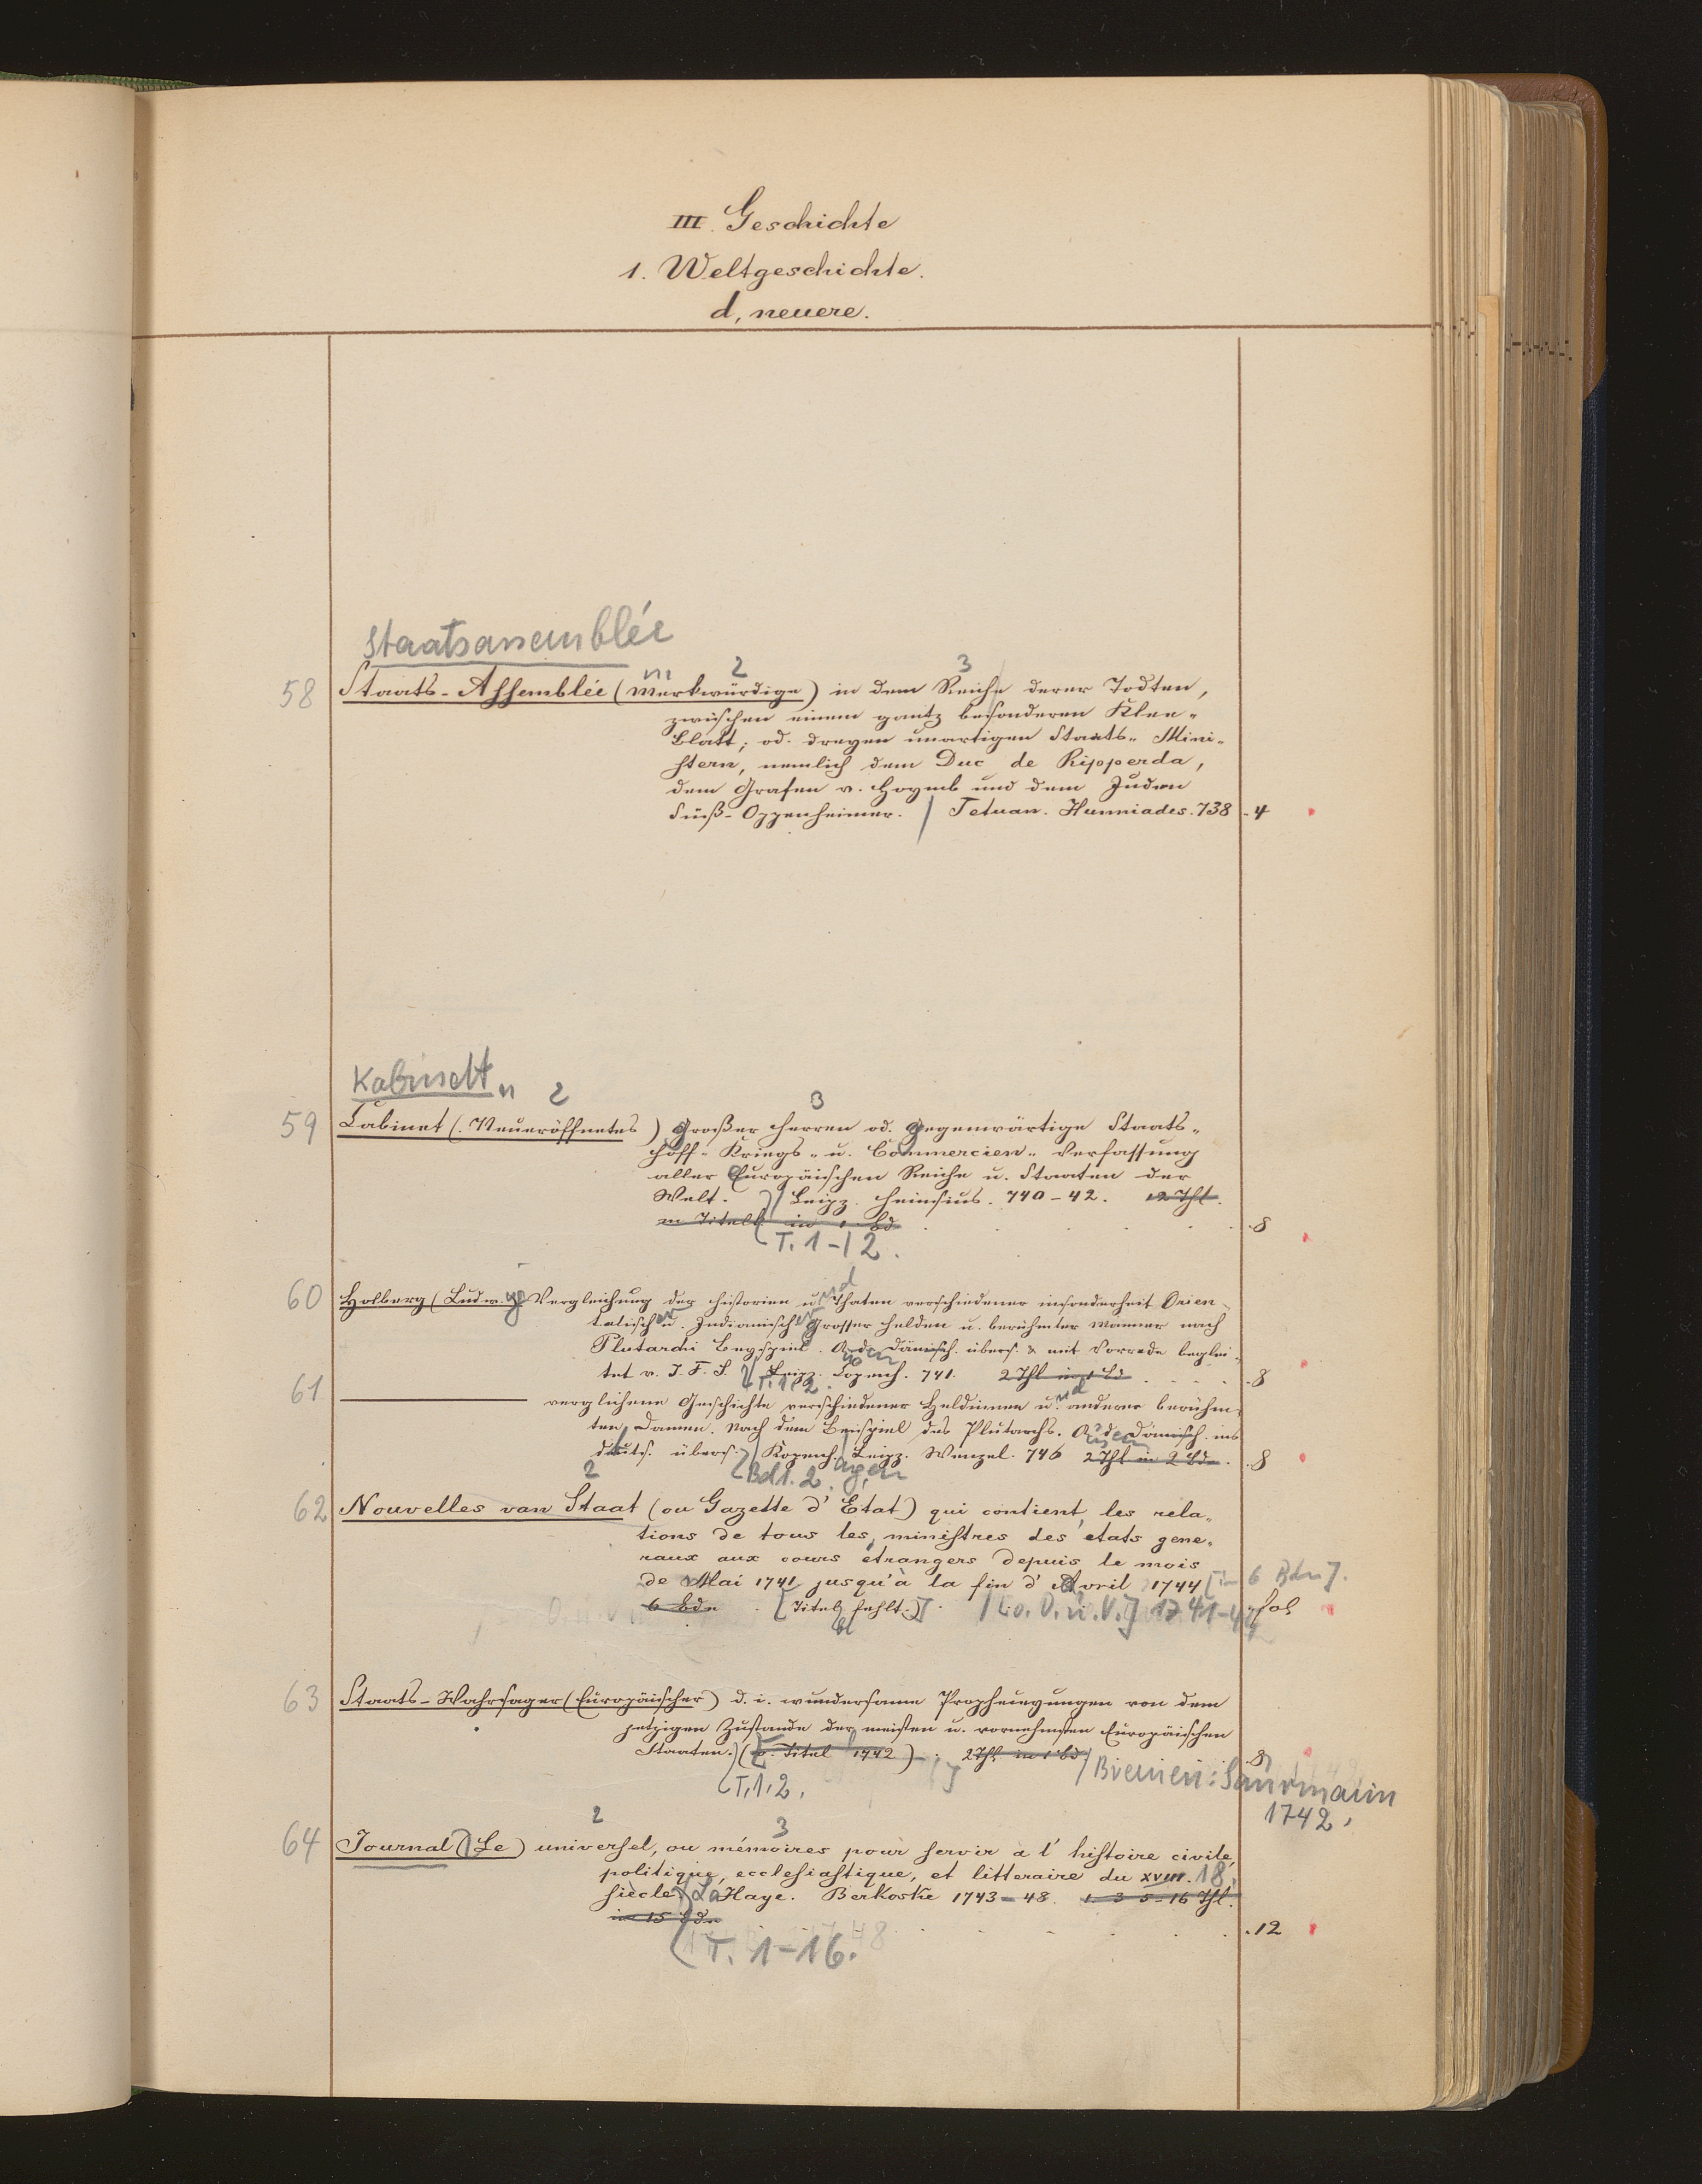 III. Geschichte
1. Weltgeschichte.
d, neuere.
Staatsassemblée
m 2 3
58 Staats-Assemblée (Merkwürdige) in dem Reiche derer Todten,
zwischen einem gantz besonderen Klee-
Blatt; od. dreyen unartigen Staats- Mini-
stern, nemlich dem Duc de Ripperda,
dem Grafen v. Hoymb und dem Juden
Süß-Oppenheimer. / Tetuan. Hunniades. 738 . 4
Kabinett
n 2 3
59 Cabinet (Neueröffnetes) großer Herren od. gegenwärtige Staats-
Hoff- Kriegs- u. Commercien- Verfassung
aller Europäischen Reiche u. Staaten der
Welt. / Leipz. Heinsius. 740-42. 12 Thl.
m Titelk in 1 Bd . 8
T. 1-12.
60 Holberg (Ludwig) Vergleichung der Historien und Thaten verschiedener insonderheit Orien-
talischer u. Indianischer Grosser Helden u. berühmter Männer nach
Plutarchi Beyspiel. A. d. Dänisch. übers. & mit Vorrede beglei-
tet v. J. F. S. / Leipz. Copenh. 741. 2 Thl in 1 Bd . 8
T. 1.2.
61 ——— verglichene Geschichte verschiedener Heldinnen und anderer berühm-
ten Damen. Nach dem Beispiel des Plutarchs. A. d. Dänisch. ins
deuts. übers. / Kopenh. Leipz. Wenzel. 746 2 Thl in 2 Bdn. . 8
Bd 1. 2. agen
2
62 Nouvelles van Staat (ou Gazette d' Etat) qui contient les rela-
tions de tous les ministres des états gene-
raux aux cours étrangers depuis le mois
de Mai 1741 jusqu'à la fin d' Avril 1744 [in 6 Bdn].
6 Bdn [Titelbl fehlt.] / [o. O. u. V.] 1741-44 fol
63 Staats-Wahrsager (Europäischer) d. i. wundersame Propheceyungen von dem
jetzigen Zustande der meisten u. vornehmsten Europäischen
Staaten. (o. Titel 1742) 2 Thl in 1 Bd / . 8
Bremen: Saurmann
T. 1.2. 1742.
2 3
64 Journal (Le) universel, ou mémoires pour servir à l' histoire civile,
politique, ecclesiastique, et litteraire du XVIII. 18.
siècle. La Haye. Berkoske 1743-48. 1-3 5-16 Thl.
in 15 Bdn . 12
T. 1-16.